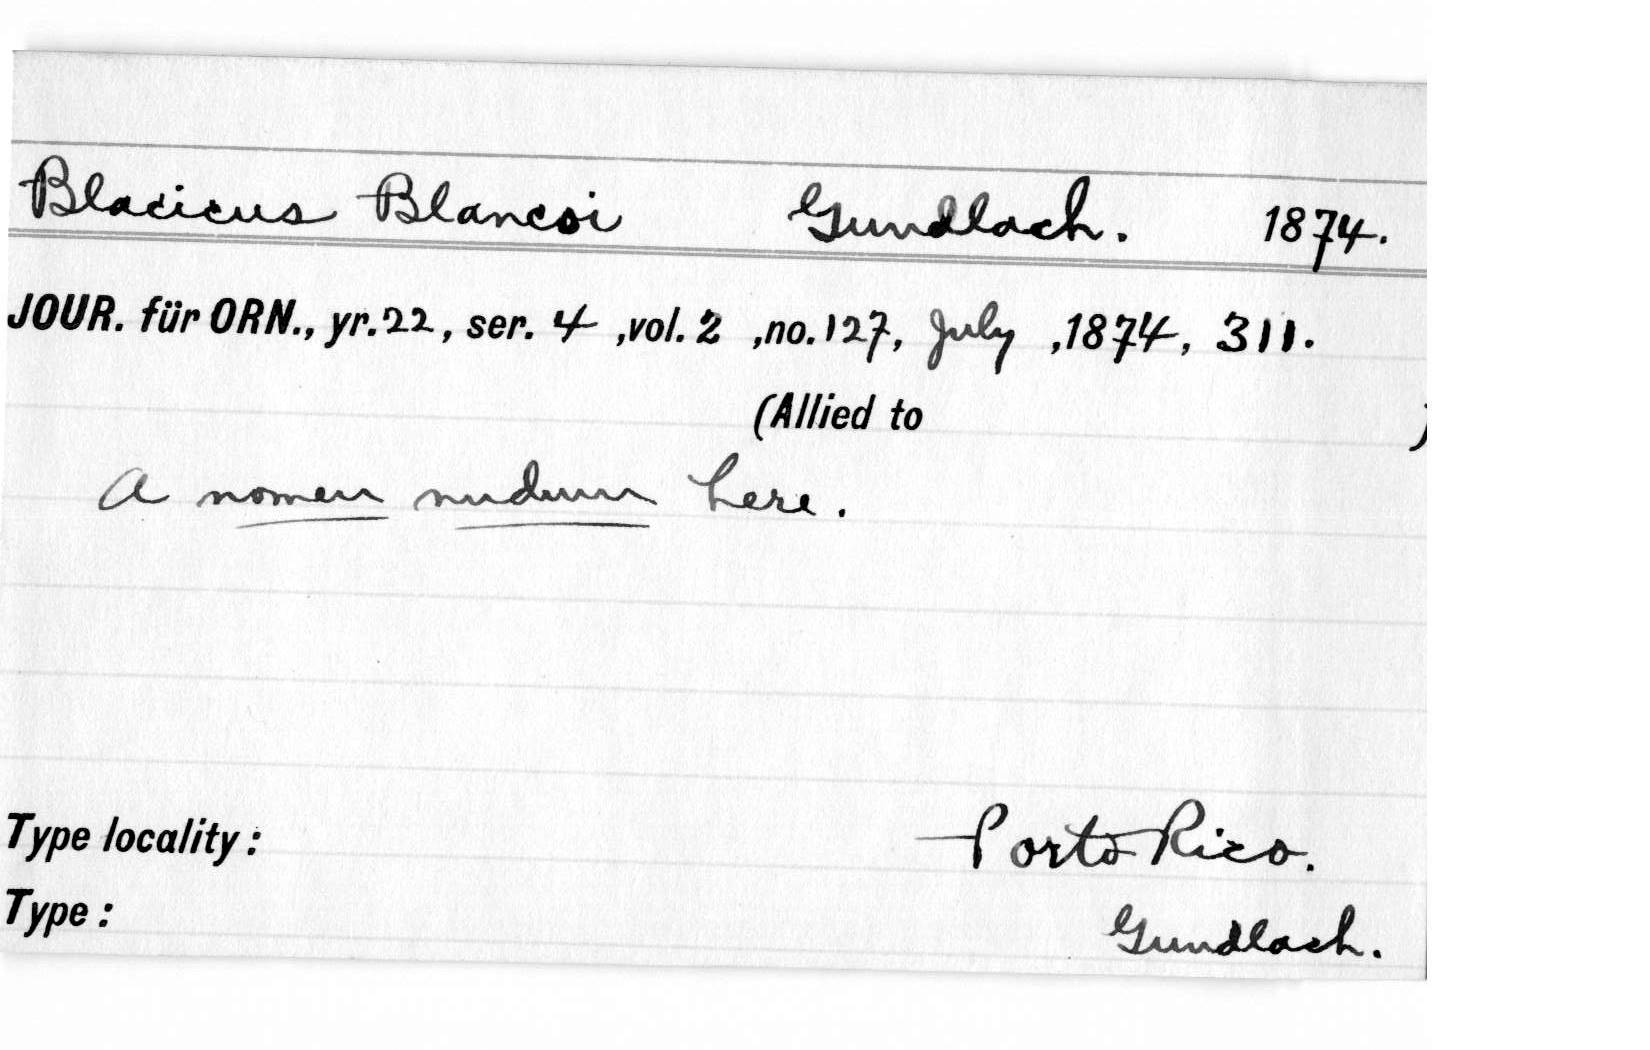 Blacicus Blancoi Gundlach. 1874.
JOUR. für ORN., yr.22, ser. 4 ,vol. 2 ,no.127, July ,1874, 311.
(Allied to )
A nomen nudum here.
Type locality: Porto Rico.
Type: Gundlach.